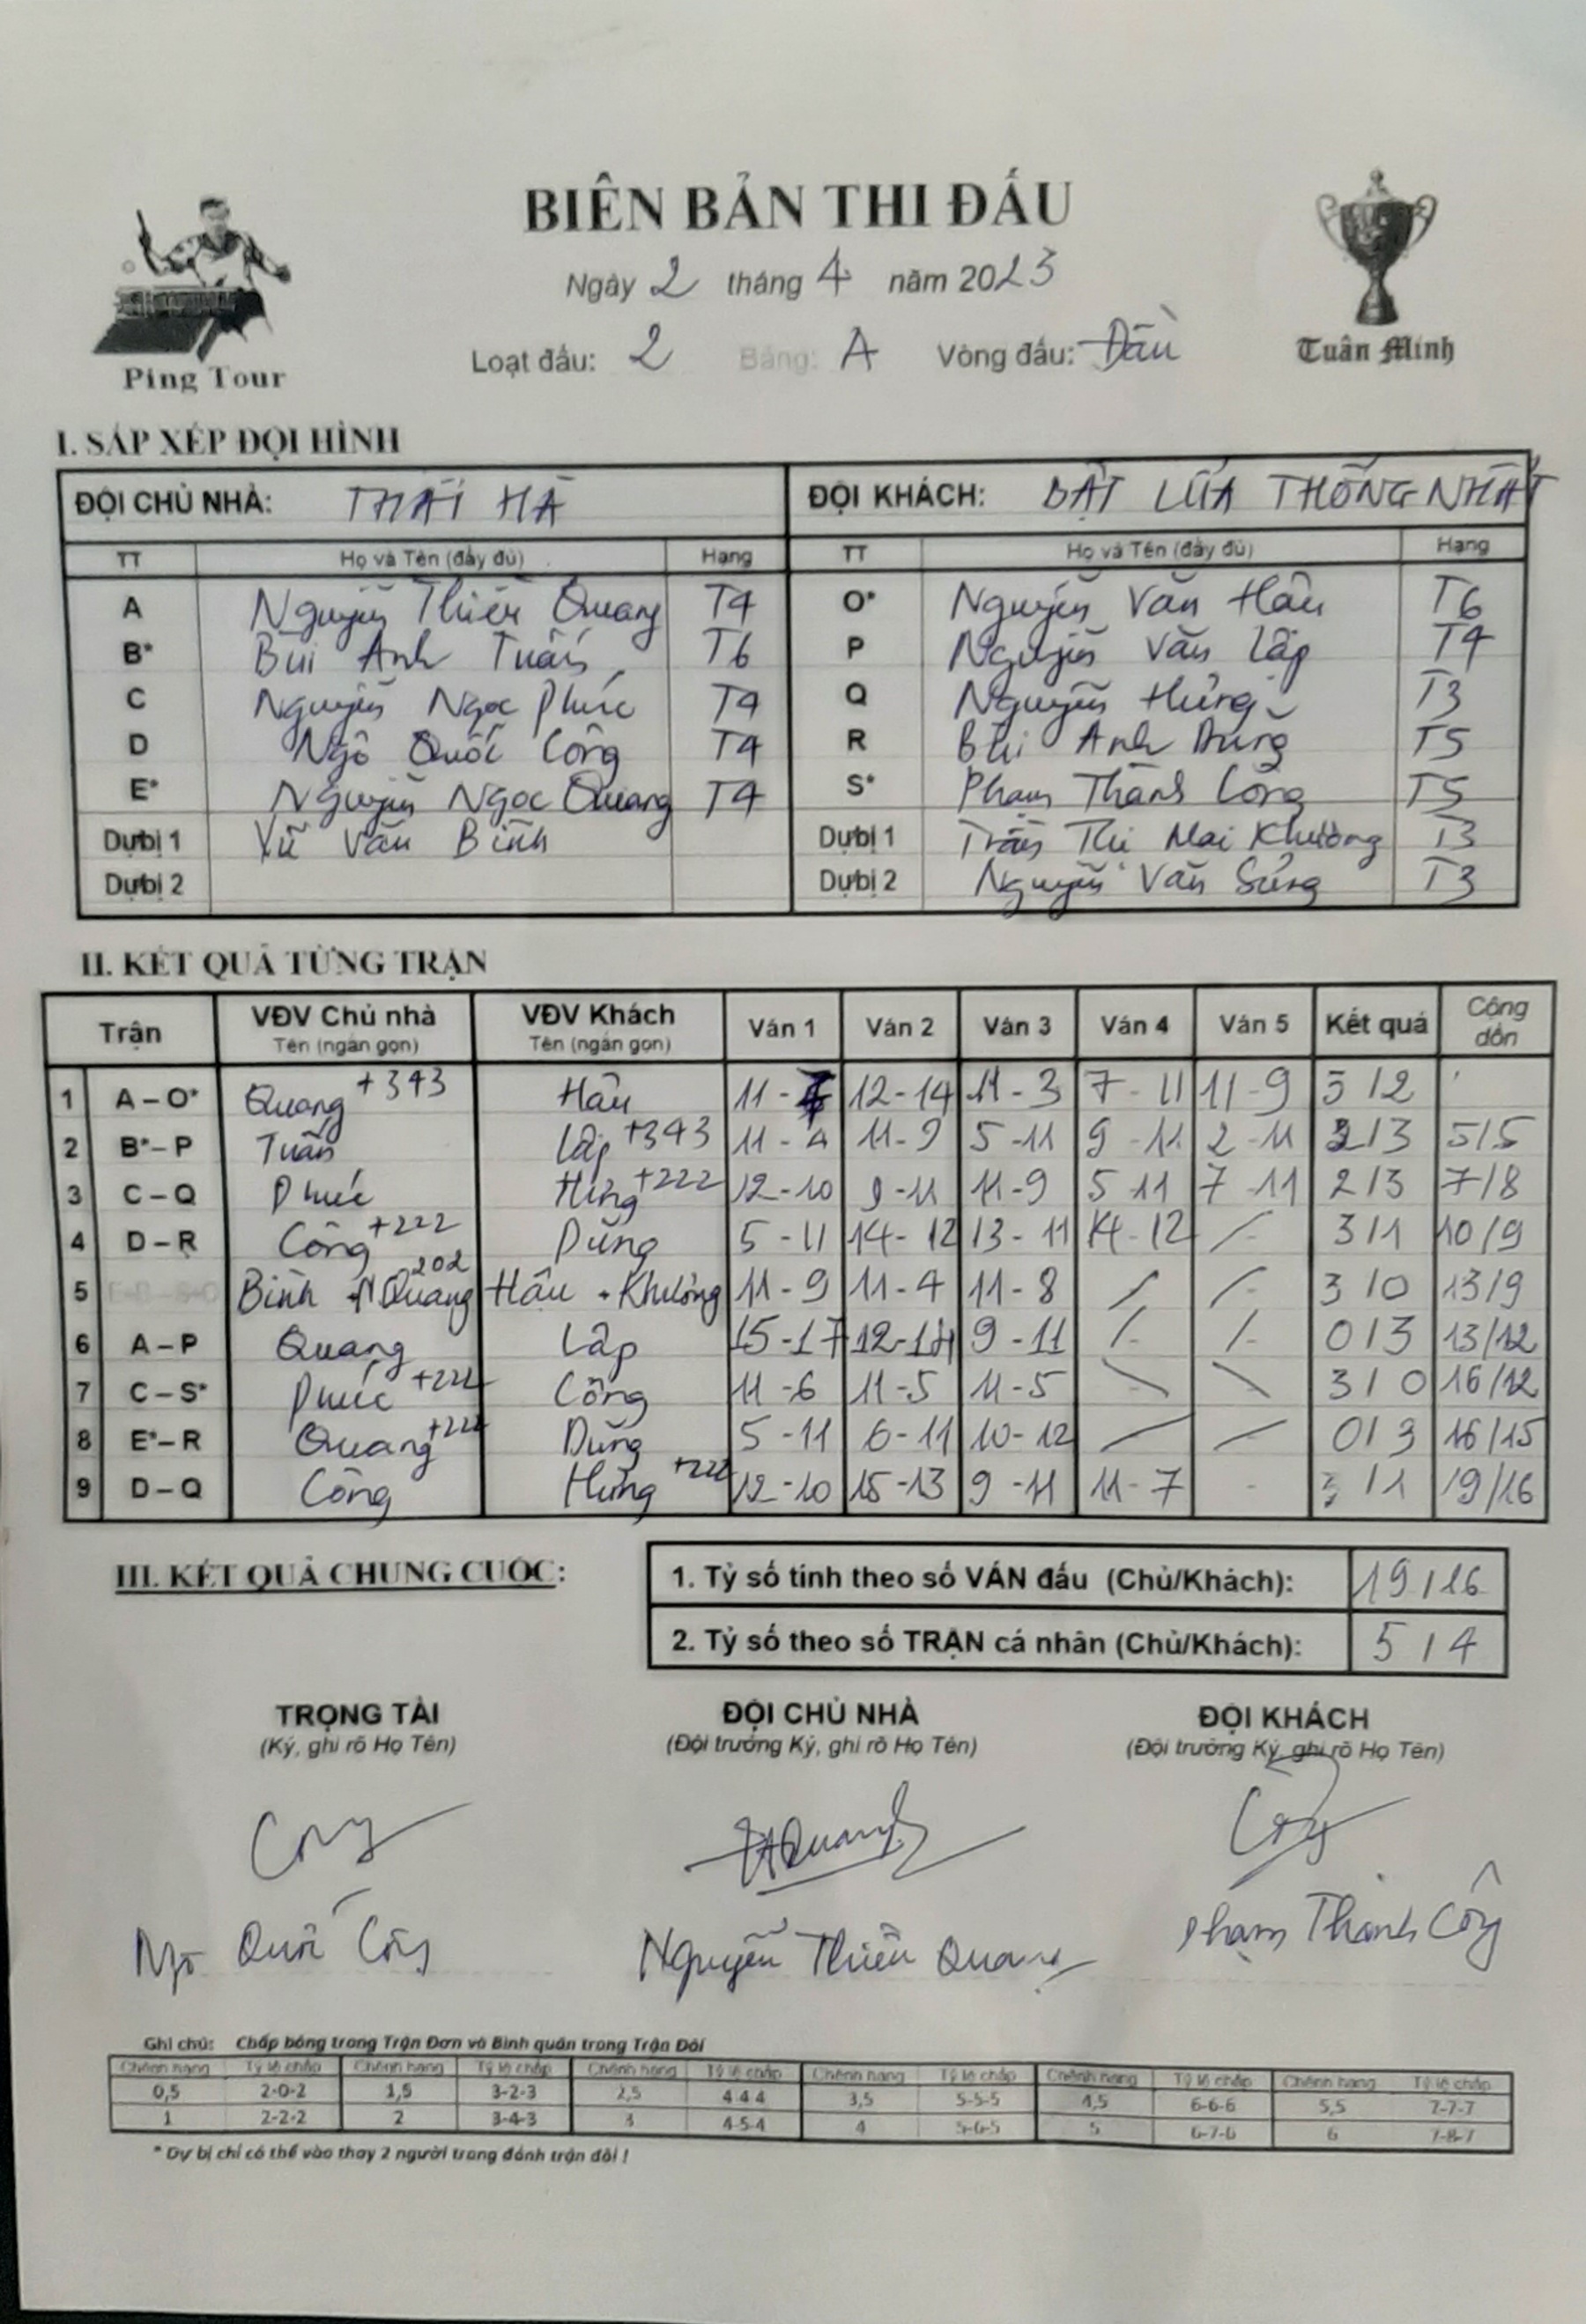 BIÊN BẢN THI ĐẤU
Ngày 2 tháng 4 năm 2023
Loạt đấu: 2 Bảng: A Vòng đấu: Đầu
Ping Tour
Tuấn Minh
I. SẮP XẾP ĐỘI HÌNH
ĐỘI CHỦ NHÀ: THÁI HÀ ĐỘI KHÁCH: BẬT LỬA THỐNG NHẤT
TT Họ và Tên (đầy đủ) Hạng TT Họ và Tên (đầy đủ) Hạng
A Nguyễn Thiên Quang T4 O* Nguyễn Văn Hậu T6
B* Bùi Anh Tuấn T6 P Nguyễn Văn Lập T4
C Nguyễn Ngọc Phúc T4 Q Nguyễn Hùng T3
D Ngô Quốc Công T4 R Bùi Anh Dũng T5
E* Nguyễn Ngọc Quang T4 S* Phạm Thành Công T5
Dự bị 1 Vũ Văn Bình Dự bị 1 Trần Thị Mai Khương T3
Dự bị 2 Dự bị 2 Nguyễn Văn T3
II. KẾT QUẢ TỪNG TRẬN
Trận VĐV Chủ nhà VĐV Khách Ván 1 Ván 2 Ván 3 Ván 4 Ván 5 Kết quả Cộng dồn
Tên (ngắn gọn) Tên (ngắn gọn)
1 A – O* Quang +343 Hậu 11 - 12 - 14 11 - 3 7 - 11 11 - 9 3 / 2
2 B* – P Tuấn Lập +343 11 - 4 11 - 9 5 - 11 9 - 11 2 - 11 2 / 3 5/5
3 C – Q Phúc Hùng +222 12 - 10 9 - 11 11 - 9 5 11 7 - 11 2 / 3 7/8
4 D – R Công +222 Dũng 5 - 11 14 - 12 13 - 11 14 - 12 / - 3 / 1 10/9
5 E-B – S-O Bình + N Quang 202 Hậu + Khương 11 - 9 11 - 4 11 - 8 / / - 3 / 0 13/9
6 A – P Quang Lập 15 - 17 12 - 14 9 - 11 / - / - 0 / 3 13/12
7 C – S* Phúc +222 Công 11 - 6 11 - 5 11 - 5 \ \ 3 / 0 16/12
8 E* – R Quang +222 Dũng 5 - 11 6 - 11 10 - 12 / / 0 / 3 16/15
9 D – Q Công Hùng +222 12 - 10 15 - 13 9 - 11 11 - 7 - 3 / 1 19/16
III. KẾT QUẢ CHUNG CUỘC:
1. Tỷ số tính theo số VÁN đấu (Chủ/Khách): 19 / 16
2. Tỷ số theo số TRẬN cá nhân (Chủ/Khách): 5 / 4
TRỌNG TÀI ĐỘI CHỦ NHÀ ĐỘI KHÁCH
(Ký, ghi rõ Họ Tên) (Đội trưởng Ký, ghi rõ Họ Tên) (Đội trưởng Ký, ghi rõ Họ Tên)
Công Quang Công
Ngô Quốc Công Nguyễn Thiên Quang Phạm Thành Công
Ghi chú: Chấp bóng trong Trận Đơn và Bình quân trong Trận Đôi
Chênh hạng Tỷ lệ chấp Chênh hạng Tỷ lệ chấp Chênh hạng Tỷ lệ chấp Chênh hạng Tỷ lệ chấp Chênh hạng Tỷ lệ chấp Chênh hạng Tỷ lệ chấp
0,5 2-0-2 1,5 3-2-3 2,5 4-4-4 3,5 5-5-5 4,5 6-6-6 5,5 7-7-7
1 2-2-2 2 3-4-3 3 4-5-4 4 5-6-5 5 6-7-6 6 7-8-7
* Dự bị chỉ có thể vào thay 2 người trong đánh trận đôi !